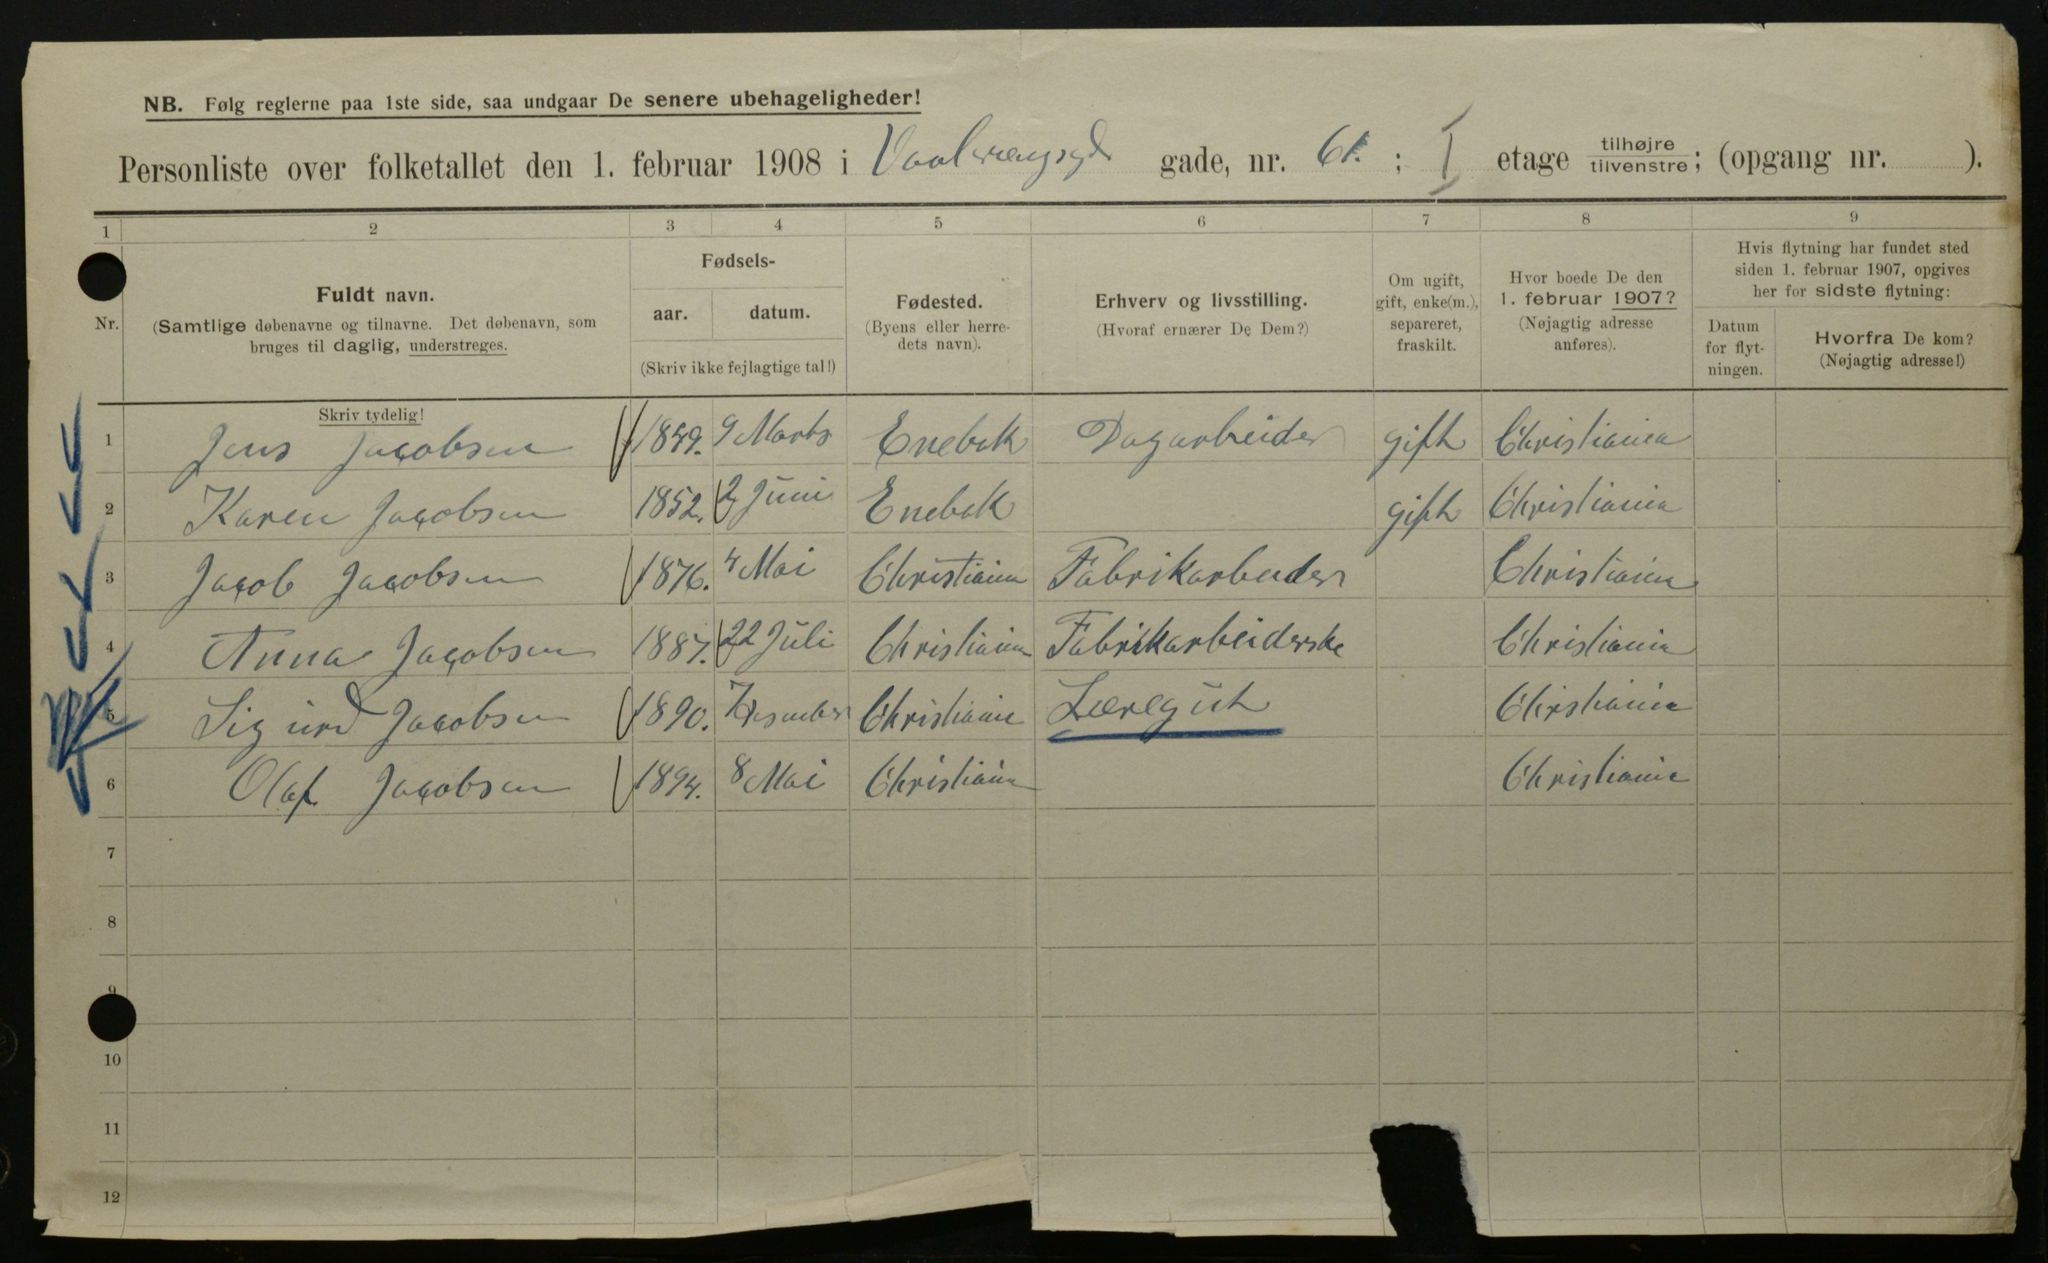 NB. Følg reglerne paa 1ste side, saa undgaar De senere ubehageligheder!
Personliste over folketallet den 1. februar 1908 i Vaalerengsgd gade, nr. 61. ; I etage tilhøjre tilvenstre; (opgang nr. ).
1 2 3 4 5 6 7 8 9
Nr.
Fuldt navn.
(Samtlige døbenavne og tilnavne. Det døbenavn, som
bruges til daglig, understreges.
Skriv tydelig!
Fødsels-
aar. datum.
(Skriv ikke fejlagtige tal!)
Fødested.
(Byens eller herre-
dets navn).
Erhverv og livsstilling.
(Hvoraf ernærer De Dem?)
Om ugift,
gift, enke(m.),
separeret,
fraskilt.
Hvor boede De den
1. februar 1907?
(Nøjagtig adresse
anføres).
Hvis flytning har fundet sted
siden 1. februar 1907, opgives
her for sidste flytning:
Datum
for flyt-
ningen.
Hvorfra De kom?
(Nøjagtig adresse!)
1 Jens Jacobsen 1849. 9 Marts Enebak Dagarbeider gift Christiania
2 Karen Jacobsen 1852. 2 Juni Enebak gift Christiania
3 Jacob Jacobsen 1876. 4 Mai Christiania Fabrikarbeider Christiania
4 Anna Jacobsen 1887. 22 Juli Christiania Fabrikarbeiderske Christiania
5 Sigurd Jacobsen 1890. Christiania Læregut Christiania
6 Olaf Jacobsen 1894. 8 Mai Christiania Christiania
7
8
9
10
11
12